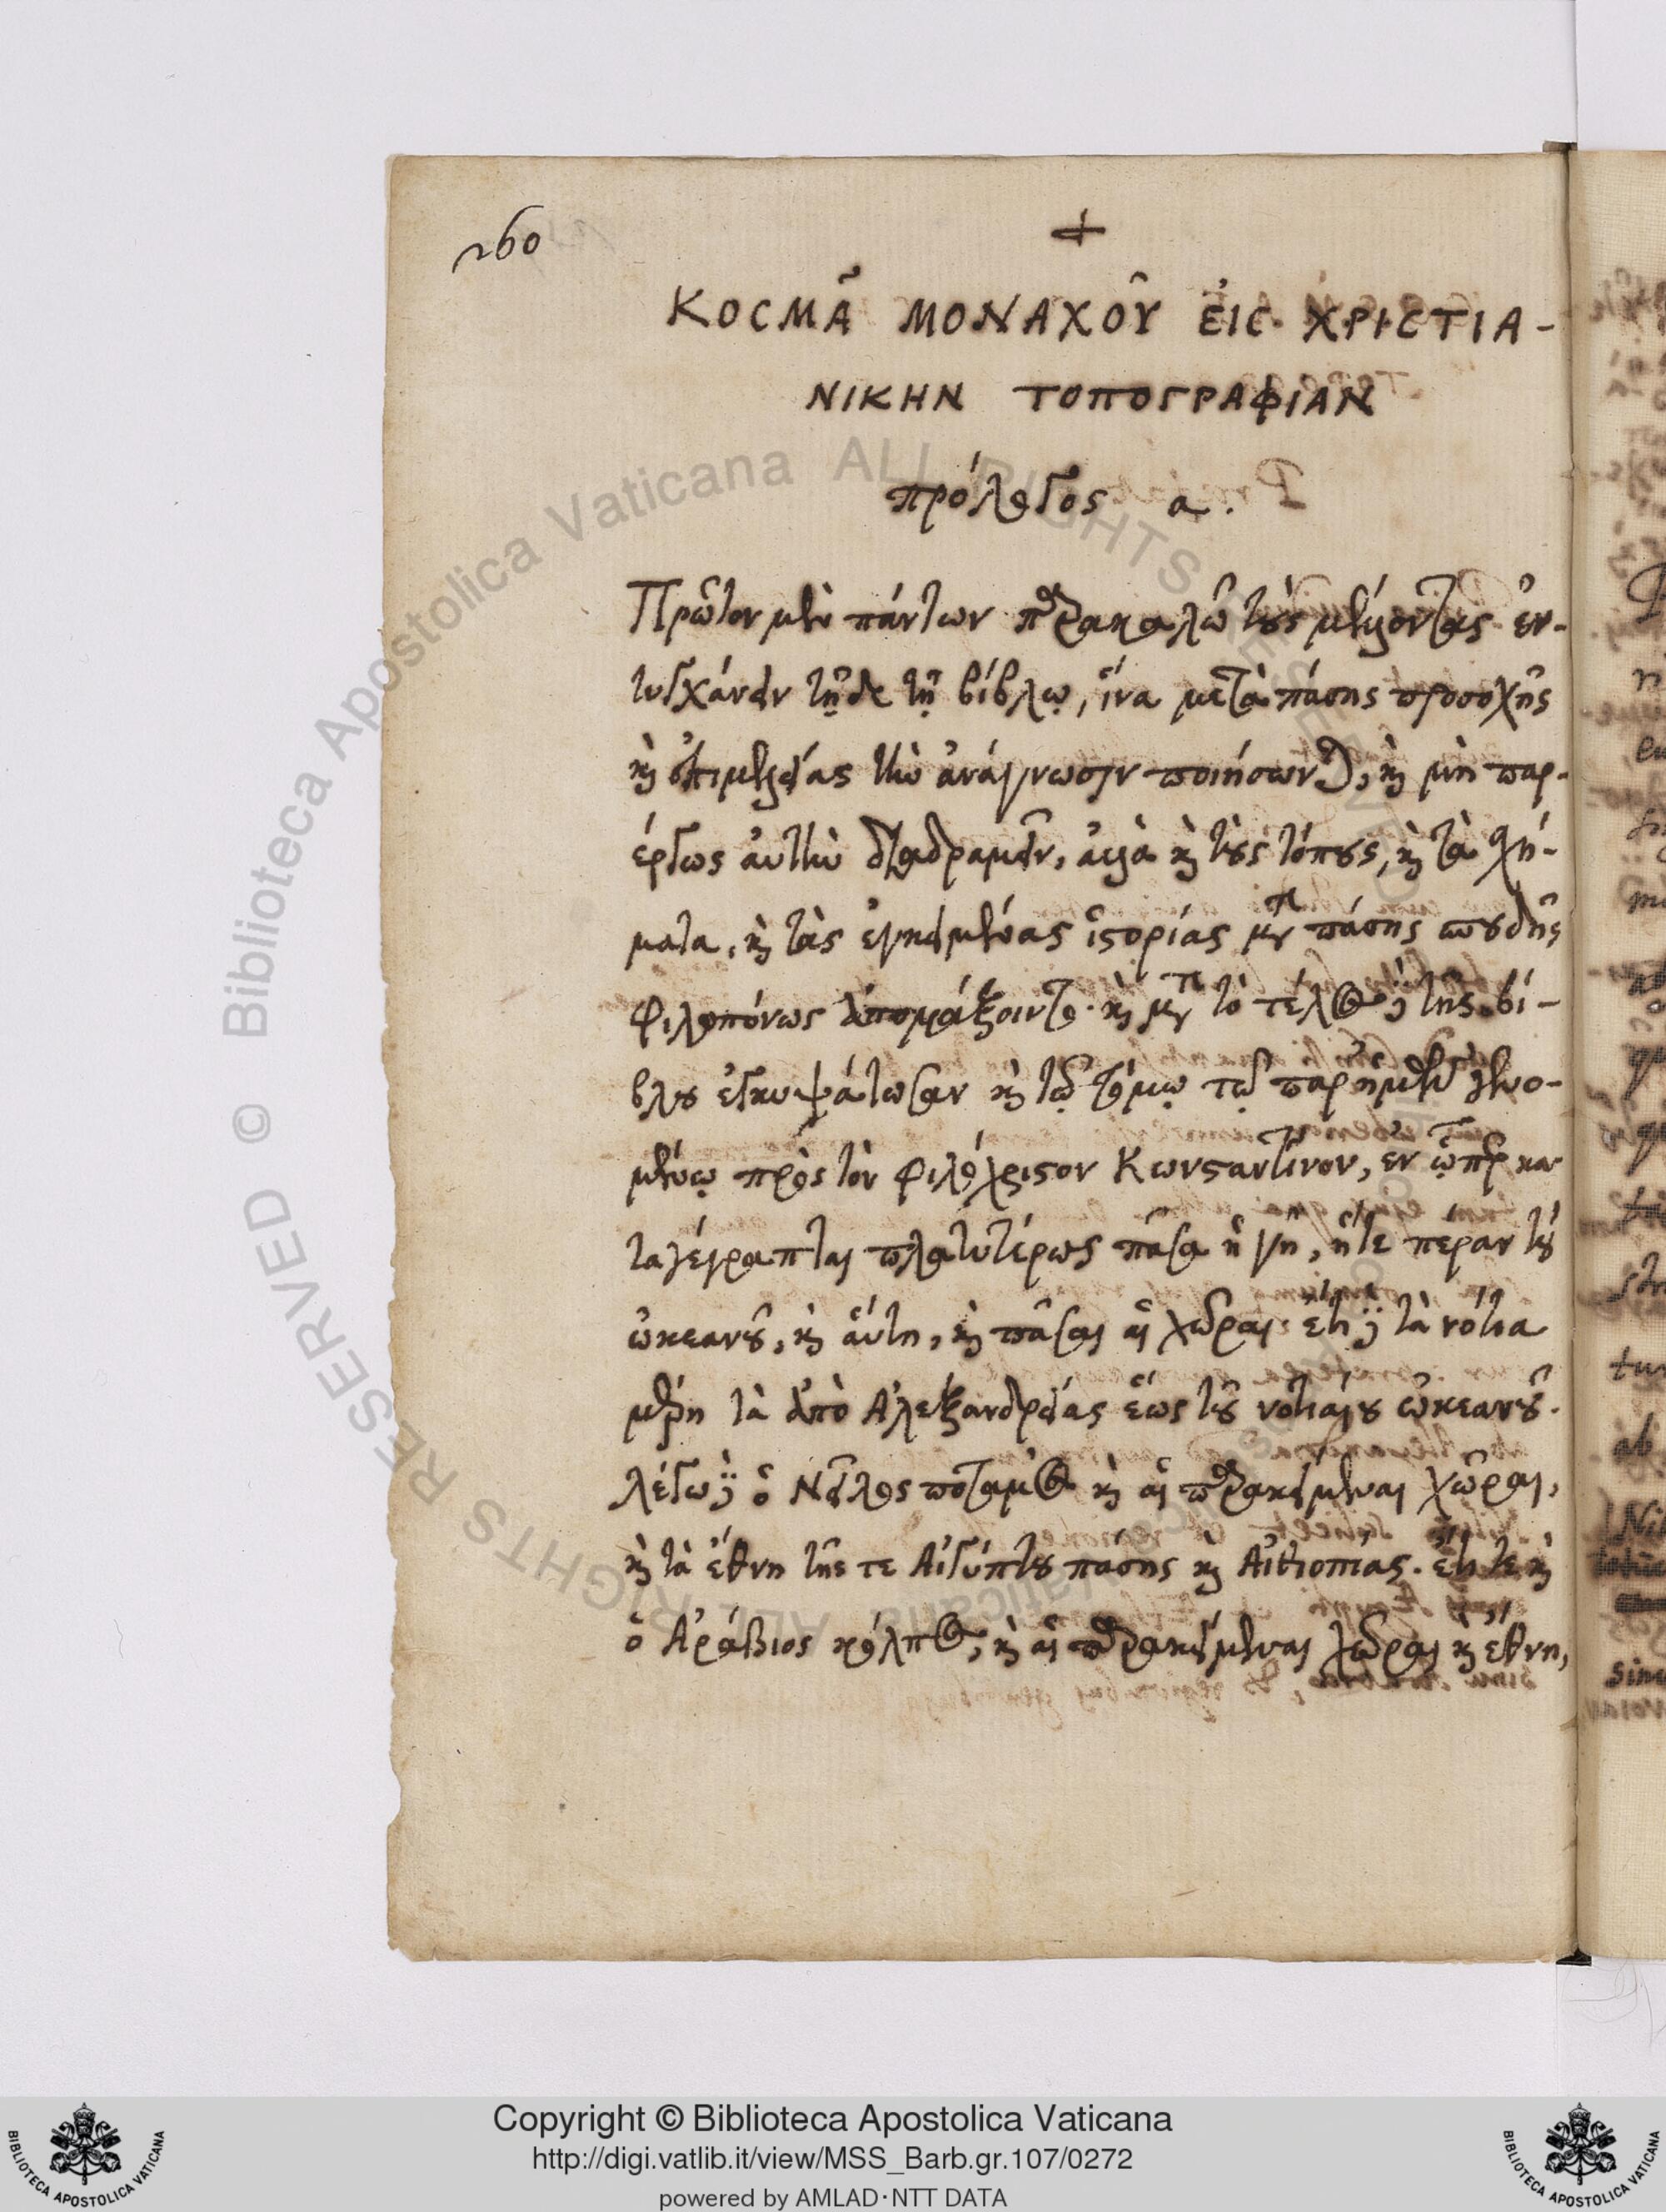 260
+
ΚΟCΜᾶ ΜΟΝΑΧΟῦ ἐΙC ΧΡΙCΤΙΑ-
ΝΙΚΗΝ ΤΟΠΟΓΡΑΦΙΑΝ
πρόλογος α.
Πρῶτον μὲν πάντων παρακαλῶ τοὺς μέλλοντας ἐν-
τυγχάνειν τῇδε τῇ βίβλῳ, ἵνα μετὰ πάσης προσοχῆς
καὶ ἐπιμελείας τὴν ἀνάγνωσιν ποιήσωνται, καὶ μὴ παρ-
έργως αὐτὴν διαδραμεῖν, ἀλλὰ καὶ τοὺς τόπους, καὶ τὰ σχή-
ματα, καὶ τὰς ἐγκειμένας ἱστορίας μετὰ πάσης σπουδῆς
φιλοπόνως ἀπομάξοιντο. καὶ μετὰ τὸ τέλος δὲ τῆς βί-
βλου ἐγκυψάτωσαν καὶ τῷ τόμῳ τῷ παρ' ἡμῶν γενο-
μένῳ πρὸς τὸν φιλόχριστον Κωνσταντῖνον, ἐν ᾧπερ κα
ταγέγραπται πλατυτέρως πᾶσα ἡ γῆ, ἥτε πέραν τοῦ
ὠκεανοῦ, καὶ αὕτη, καὶ πᾶσαι αἱ χῶραι· ἔτι δὲ τὰ νότια
μέρη τὰ ἀπὸ Ἀλεξανδρείας ἕως τοῦ νοτιαίου ὠκεανοῦ.
λέγω δὲ ὁ Νεῖλος ποταμὸς καὶ αἱ παρακείμεναι χῶραι,
καὶ τὰ ἔθνη τῆς τε Αἰγύπτου πάσης καὶ Αἰθιοπίας. ἔτι τε καὶ
ὁ Ἀράβιος κόλπος, καὶ αἱ παρακείμεναι χῶραι καὶ ἔθνη,
Copyright © Biblioteca Apostolica Vaticana
http://digi.vatlib.it/view/MSS_Barb.gr.107/0272
powered by AMLAD·NTT DATA